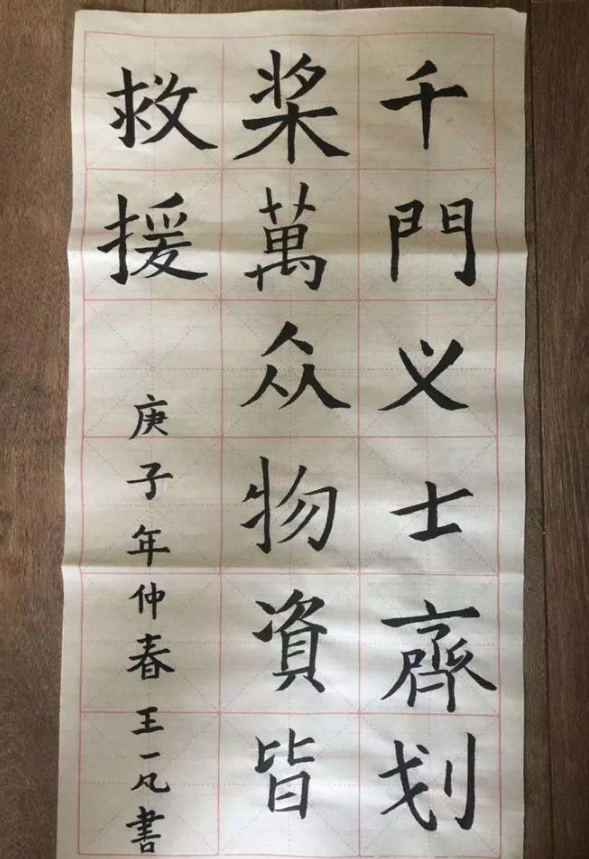 千門义士齊划
桨萬众物資皆
救援
庚子年仲春王一凡書